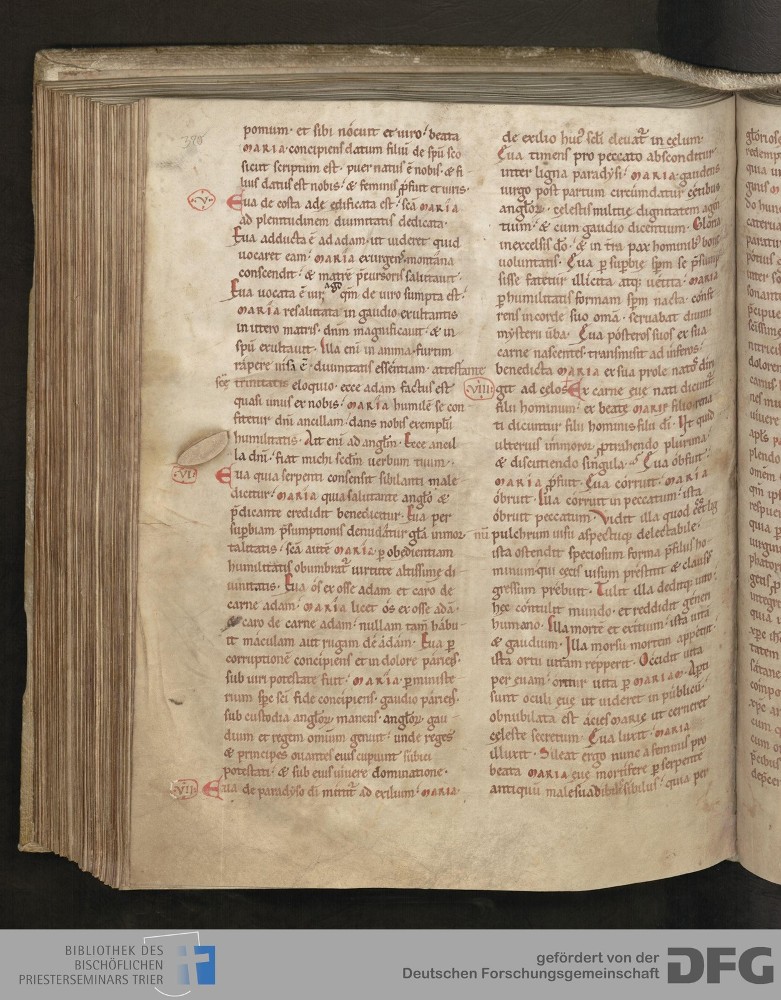 398
pomum· et sibi nocuit et uiro· beata
MARIA· concipiens datum filiū de spū sc̄o
sicut scriptum est· puer natus ē nobis· & fi
lius datus est nobis· & feminis ꝓfuit et uiris·
V
Eua de costa adę ędificata est· sc̄a MARIA
ad plenitudinem diuinitatis dedicata·
Eua adducta ē ad adam· ut uideret quid
uocaret eam· MARIA exurgens montana
conscendit· & matrē p̄cursoris salutauit·
Eua uocata ē uirago qm̄ de uiro sumpta est·
MARIA resalutata in gaudio exultantis
in utero matris· dn̄m magnificauit· & in
spū exultauit· Illa eni in anima· furtim
rapere uisa ē· diuinitatis essentiam· attestante
scę trinitatis eloquio· ecce adam factus est
quasi unus ex nobis· MARIA humilē se con
fitetur dn̄i ancillam· dans nobis exemplū
humilitatis· Ait eni ad anglm̄· Ecce ancil
la dn̄i· fiat michi sedm̄ uerbum tuum·
VI
Eua quia serpenti consensit sibilanti male
dicitur· MARIA quia salutante anglo &
p̄dicante credidit benedicitur· Eua per
suꝑbiam p̄sumptionis denudatur gl̄a inmor
talitatis· sc̄a autē MARIA ꝑ obedientiam
humilitatis obumbrat̄ uirtute altissime di
uinitatis· Eua os ex osse adam et caro de
carne adam· MARIA licet os ex osse adā·
& caro de carne adam· nullam tam̄ habu
it maculam aut rugam de adam· Eua ꝑ
corruptionē concipiens et in dolore pariens·
sub uiri potestate fuit· MARIA ꝑ ministe
rium spc sci fide concipiens· gaudio pariens·
sub custodia angloꝝ manens· angloꝝ gau
dium et regem omium genuit· unde reges
& principes ouantes eius cupiunt subici
potestati· & sub eius uiuere dominatione·
VII
Eua de paradyso di mittit̄ ad exilium· MARIA
de exilio huiꝰ sedi eleuat̄ in cęlum·
Eua timens pro peccato absconditur
inter ligna paradysi· MARIA gaudens
uirgo post partum circūmdatur cetibus
angloꝝ· cęlestis militię dignitatem agen
tium· & cum gaudio dicentium· Gloria
in excelsis dō· & in tr̄a pax hominib; bonę
uoluntatis· Eua ꝑ suꝑbię spm̄ se p̄sump
sisse fatetur illicita atq; uetita· MARIA
ꝑ humilitatis formam spm̄ nacta· confe
rens in corde suo omā· seruabat diuini
mysterii uba· Eua posteros suos ex sua
carne nascentes transmisit ad inferos·
benedicta MARIA ex sua prole nato diri
VIII
git ad cęlos· Ex carne euę nati dicunt̄
filii hominum· ex beatę MARIE filio rena
ti dicuntur filii hominis filii di· Ne quid
ulterius inmoror ꝓtrahendo plurima·
& discutiendo singula· Eua obfuit·
MARIA ꝓfuit· Eua corruit· MARIA
obruit· Illa corruit in peccatum· ista
obruit peccatum· Vidit illa quod
pulchrum uisu aspectuq; delectabile·
ista ostendit speciosum forma p̄ filiis ho
minum· qui cęcis uisum prestitit & claudis
gressum prebuit· Tulit illa deditq; uiro·
hęc contulit mundo· et reddidit generi
humano· Illa mortē et exitium· ista uitā
& gaudium· Illa morsu mortem appetiit·
ista ortu uitam repperit· Occidit uita
per euam· oritur uita ꝑ MARIAM· Apti
sunt oculi euę ut uideret in publicū·
obnubilata est acies MARIE ut cerneret
cęleste secretum· Eua luxit· MARIA
illuxit· Sileat ergo nunc a feminis pro
beata MARIA euę mortifere ꝑ serpentē
antiquū malesuadibilis sibilus· quia per
BIBLIOTHEK DES
BISCHÖFLICHEN
PRIESTERSEMINARS TRIER
gefördert von der
Deutschen Forschungsgemeinschaft
DFG